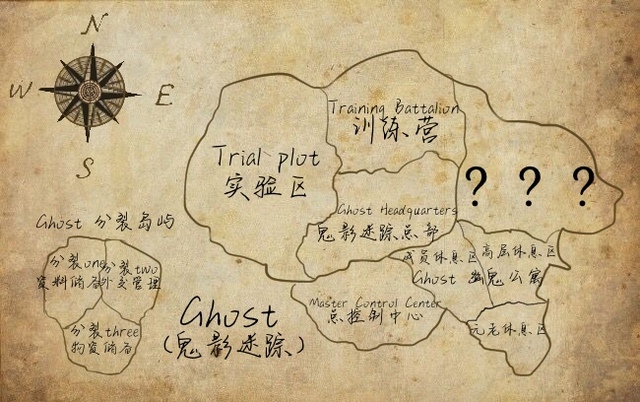 N
W
E
S
Training Battalion
训练营
Trial plot
实验区
? ? ?
Ghost Headquarters
鬼影迷踪总部
Ghost 分裂岛屿
成员休息区
高层休息区
Ghost 幽鬼公寓
分裂one
资料储备
分裂two
外交管理
Master Control Center
总控制中心
元老休息区
分裂three
物资储备
Ghost
(鬼影迷踪)